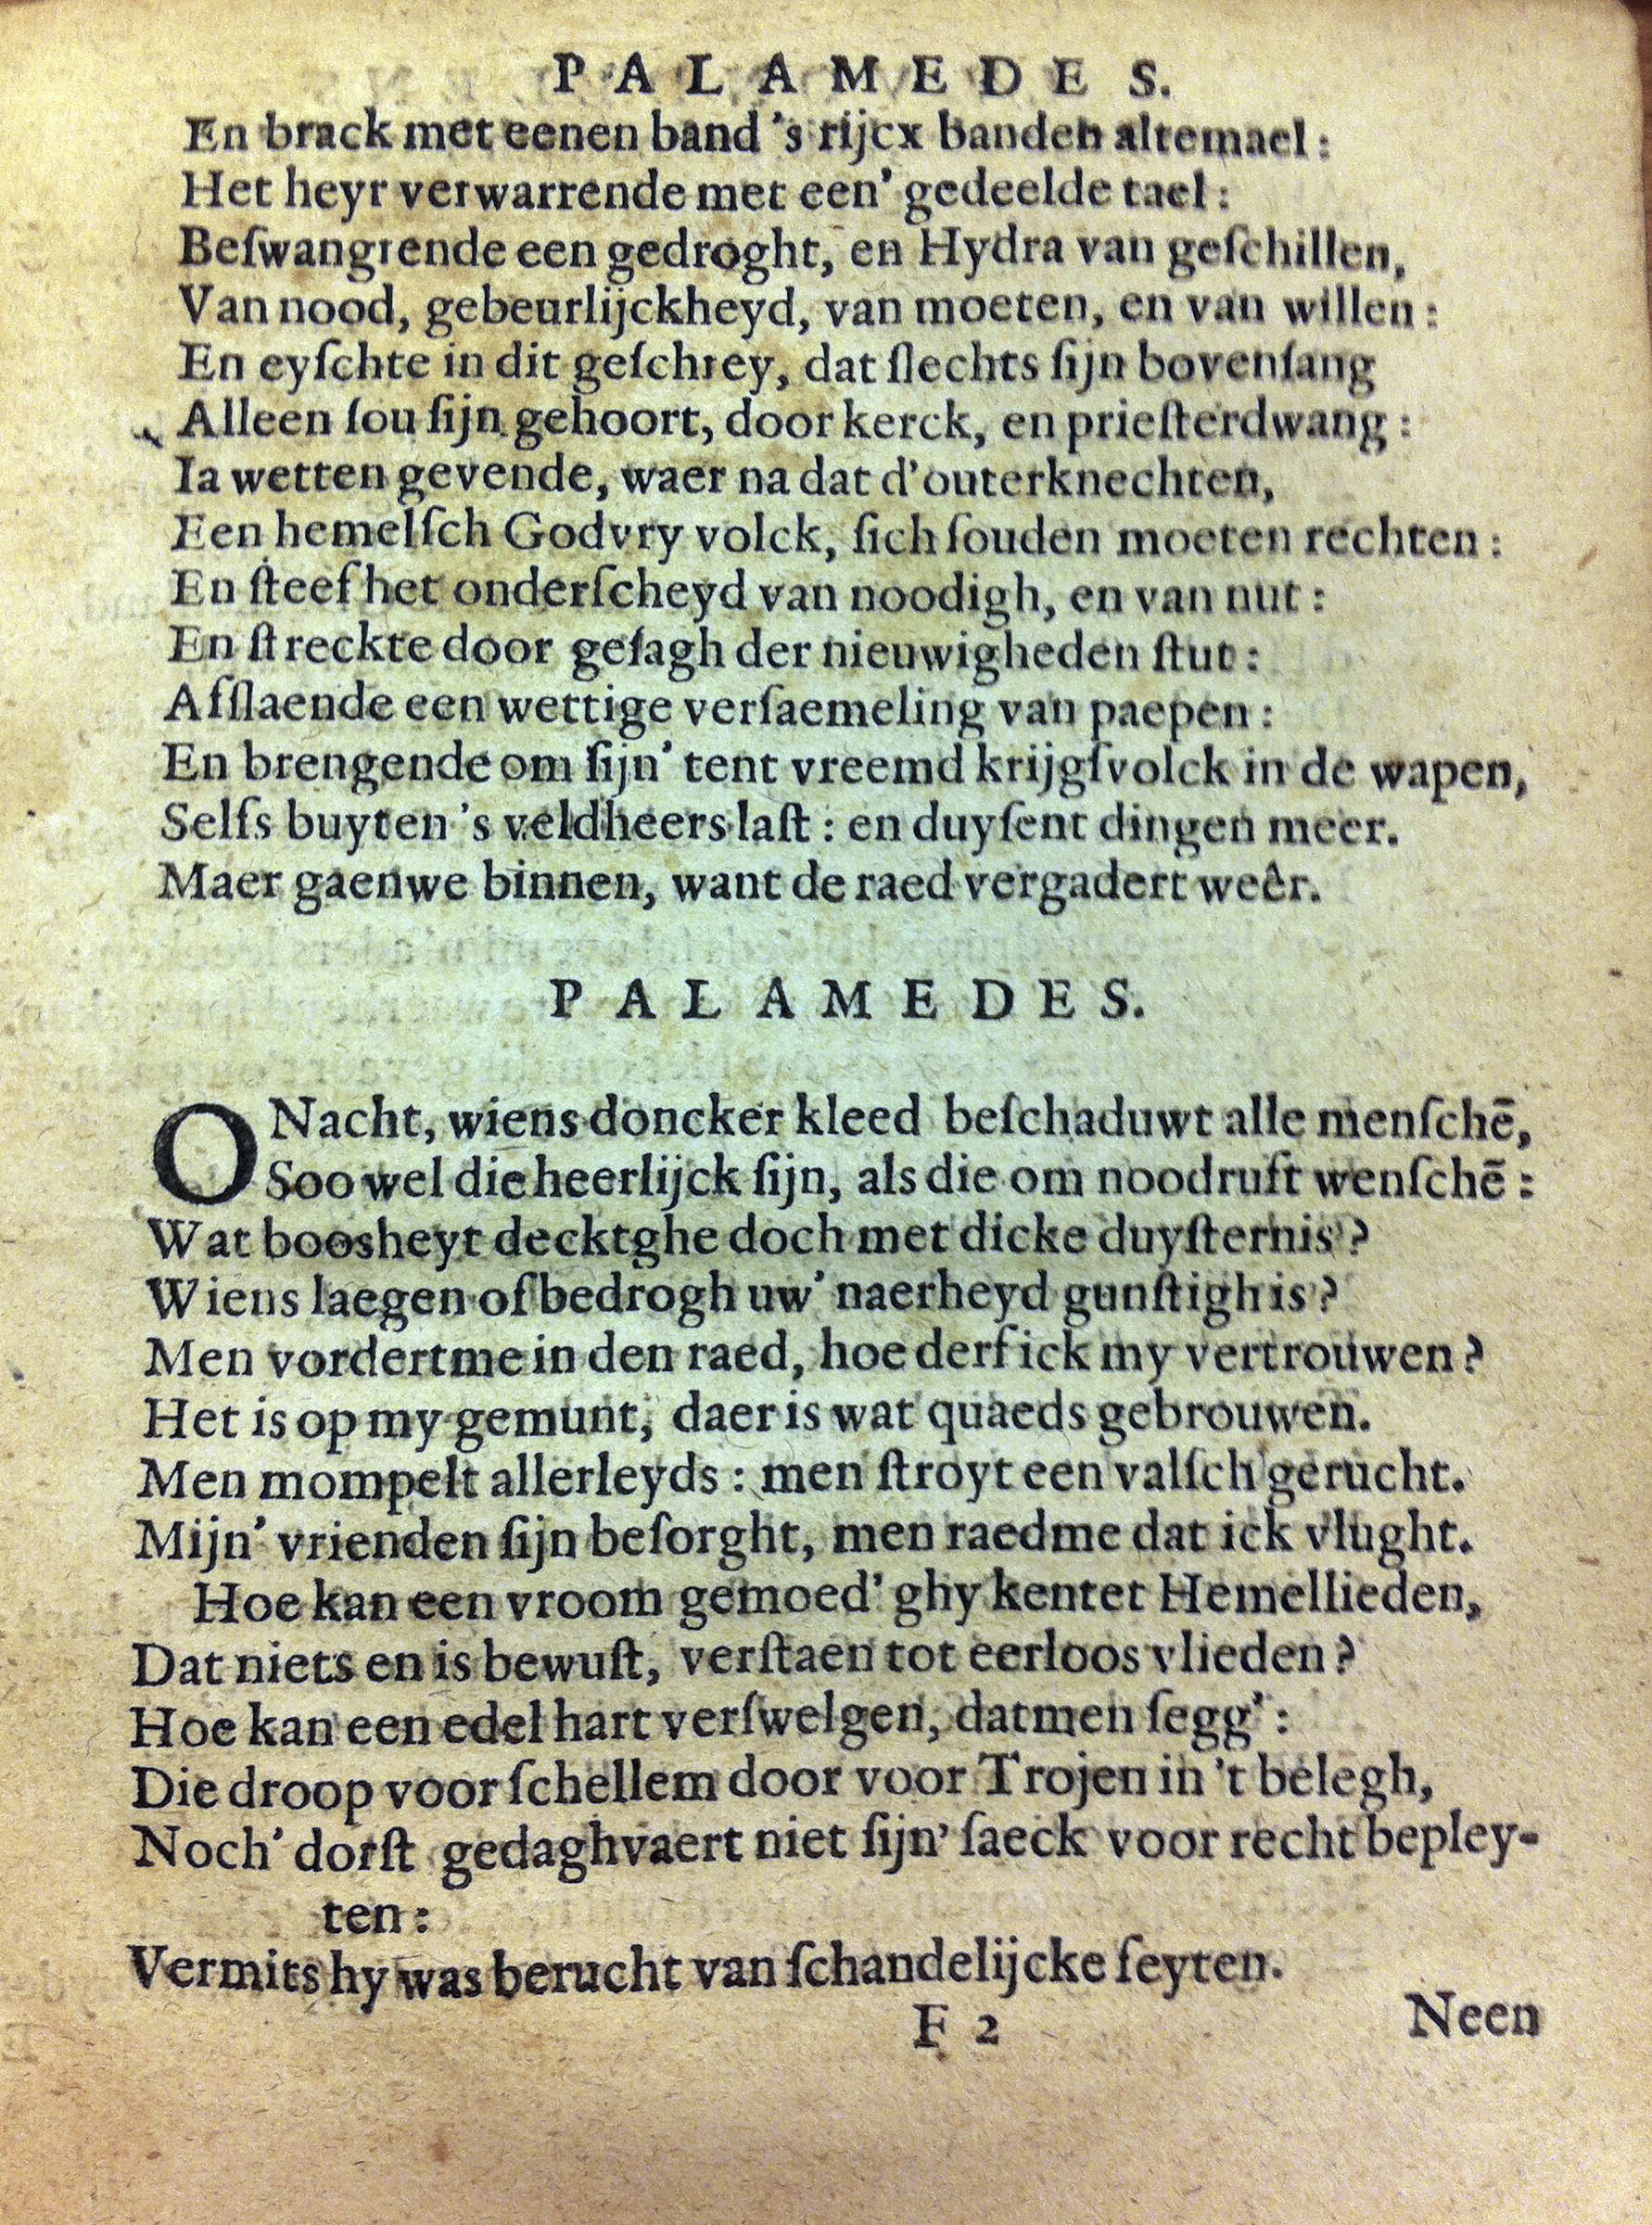 PALAMEDES.
En brack met eenen band 's rijcx banden altemael:
Het heyr verwarrende met een' gedeelde tael:
Beſwangrende een gedroght, en Hydra van geſchillen,
Van nood, gebeurlijckheyd, van moeten, en van willen:
En eyſchte in dit geſchrey, dat ſlechts ſijn bovenſang
Alleen ſou ſijn gehoort, door kerck, en prieſterdwang:
Ia wetten gevende, waer na dat d'outerknechten,
Een hemelſch Godvry volck, ſich ſouden moeten rechten:
En ſteef het onderſcheyd van noodigh, en van nut:
En ſtreckte door geſagh der nieuwigheden ſtut:
Afſlaende een wettige verſaemeling van paepen:
En brengende om ſijn' tent vreemd krijgſvolck in de wapen,
Selfs buyten 's veldheers laſt: en duyſent dingen meer.
Maer gaenwe binnen, want de raed vergadert weêr.
PALAMEDES.
O Nacht, wiens doncker kleed beſchaduwt alle menſchē,
Soo wel die heerlijck ſijn, als die om noodruft wenſchē:
Wat boosheyt decktghe doch met dicke duyſternis?
Wiens laegen of bedrogh uw' naerheyd gunſtigh is?
Men vordertme in den raed, hoe derf ick my vertrouwen?
Het is op my gemunt, daer is wat quaeds gebrouwen.
Men mompelt allerleyds: men ſtroyt een valſch gerucht.
Mijn' vrienden ſijn beſorght, men raedme dat ick vlught.
Hoe kan een vroom gemoed' ghy kentet Hemellieden,
Dat niets en is bewuſt, verſtaen tot eerloos vlieden?
Hoe kan een edel hart verſwelgen, datmen ſegg':
Die droop voor ſchellem door voor Trojen in 't belegh,
Noch' dorſt gedaghvaert niet ſijn' ſaeck voor recht bepley-
ten:
Vermits hy was berucht van ſchandelijcke feyten.
F 2
Neen